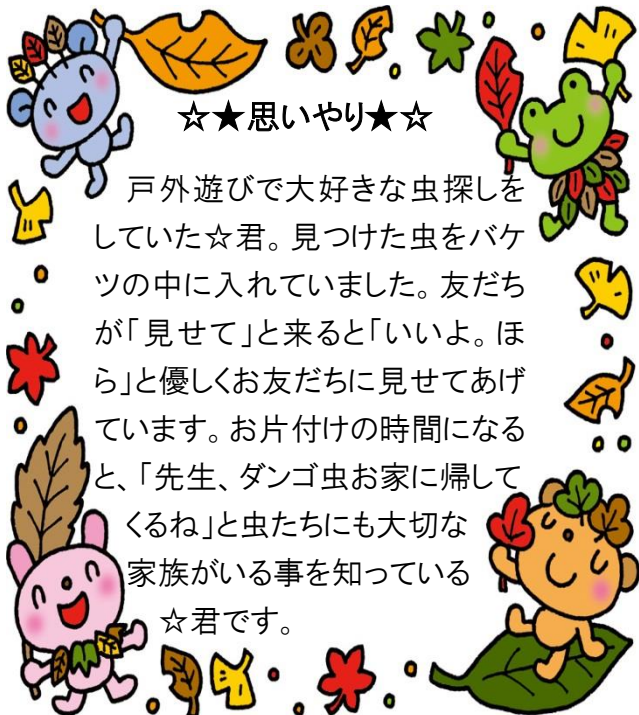 ☆★思いやり★☆
戸外遊びで大好きな虫探しを
していた☆君。見つけた虫をバケ
ツの中に入れていました。友だち
が「見せて」と来ると「いいよ。ほ
ら」と優しくお友だちに見せてあげ
ています。お片付けの時間になる
と、「先生、ダンゴ虫お家に帰して
くるね」と虫たちにも大切な
家族がいる事を知っている
☆君です。